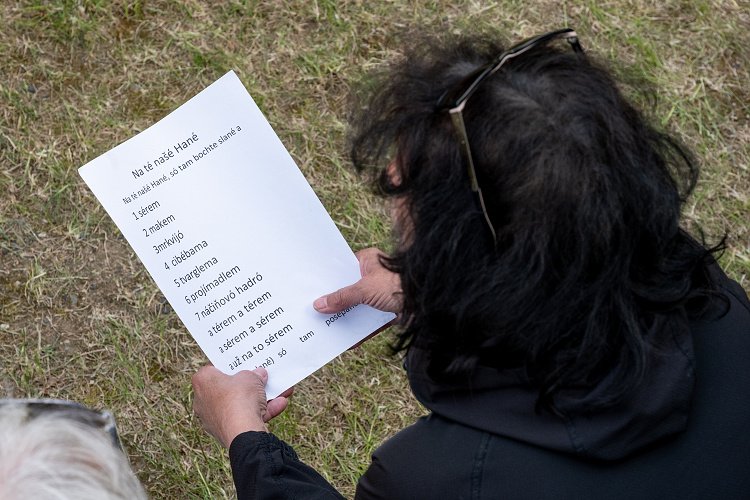 Na té našé Hané
Na té našé Hané, só tam bochte slané a
1 sérem
2 makem
3mrkvijó
4 cibébama
5 tvarglema
6 projímadlem
7 náčiňovó hadró
a térem a térem
a sérem a sérem
a už na to sérem
só tam